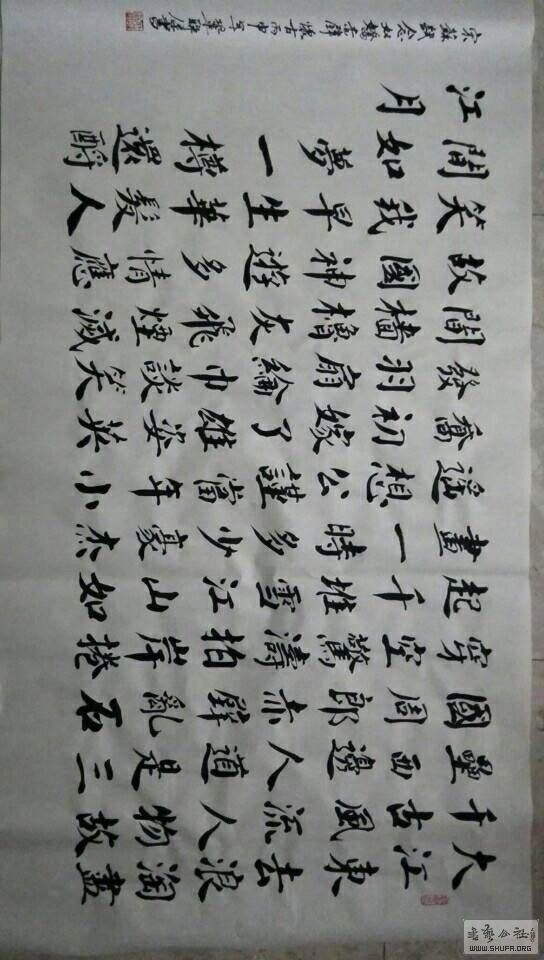 大江東去浪淘盡
千古風流人物故
壘西邊人道是三
國周郎赤壁亂石
穿空驚濤拍岸捲
起千堆雪江山如
畫一時多少豪杰
遙想公謹當年小
喬初嫁了雄姿英
發羽扇綸巾談笑
間檣櫓灰飛煙滅
故國神遊多情應
笑我早生華髮人
間如夢一樽還酹
江月
宋蘇軾念奴嬌赤壁懷古丙申年書
WWW.SHUFA.ORG